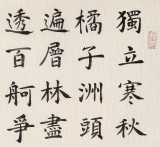 獨立寒秋
橘子洲頭
遍層林盡
透百舸爭